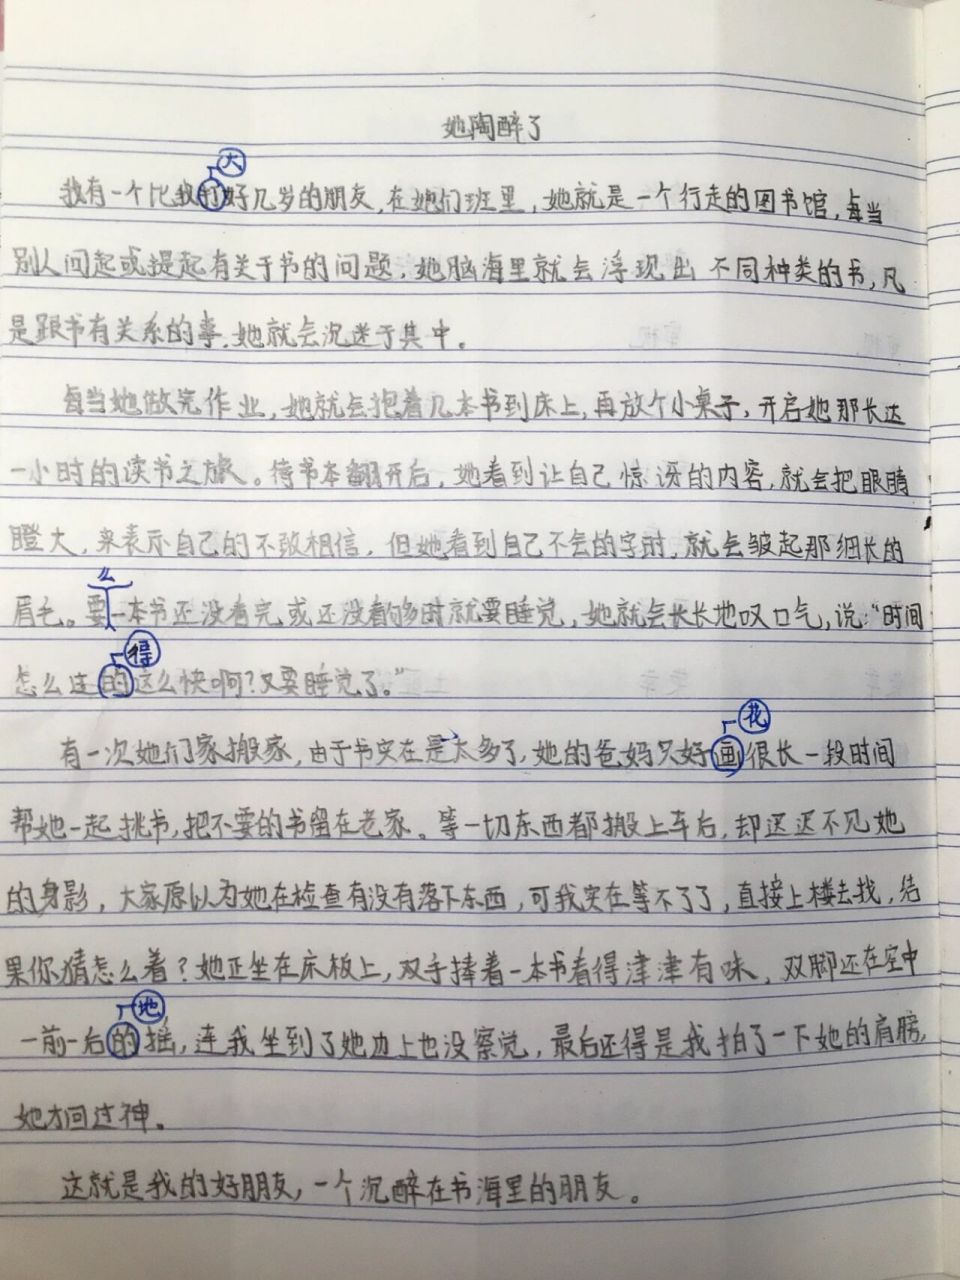 她陶醉了
大
我有一个比我打好几岁的朋友,在她们班里,她就是一个行走的图书馆,每当
别人问起或提起有关于书的问题,她脑海里就会浮现出不同种类的书,凡
是跟书有关系的事,她就会沉迷于其中。
每当她做完作业,她就会抱着几本书到床上,再放个小桌子,开启她那长达
一小时的读书之旅。待书本翻开后,她看到让自己惊讶的内容,就会把眼睛
瞪大,来表示自己的不敢相信,但她看到自己不会的字时,就会皱起那细长的
么
眉毛。要一本书还没看完或还没看够时就要睡觉,她就会长长地叹口气,说:“时间
得
怎么过的这么快啊?又要睡觉了。”
花
有一次她们家搬家,由于书实在是太多了,她的爸妈只好画很长一段时间
帮她一起挑书,把不要的书留在老家。等一切东西都搬上车后,却迟迟不见她
的身影,大家原以为她在检查有没有落下东西,可我实在等不了了,直接上楼去找,结
果你猜怎么着?她正坐在床板上,双手捧着一本书看得津津有味,双脚还在空中
地
一前一后的摇,连我坐到了她边上也没察觉,最后还得是我拍了一下她的肩膀,
她才回过神。
这就是我的好朋友,一个沉醉在书海里的朋友。